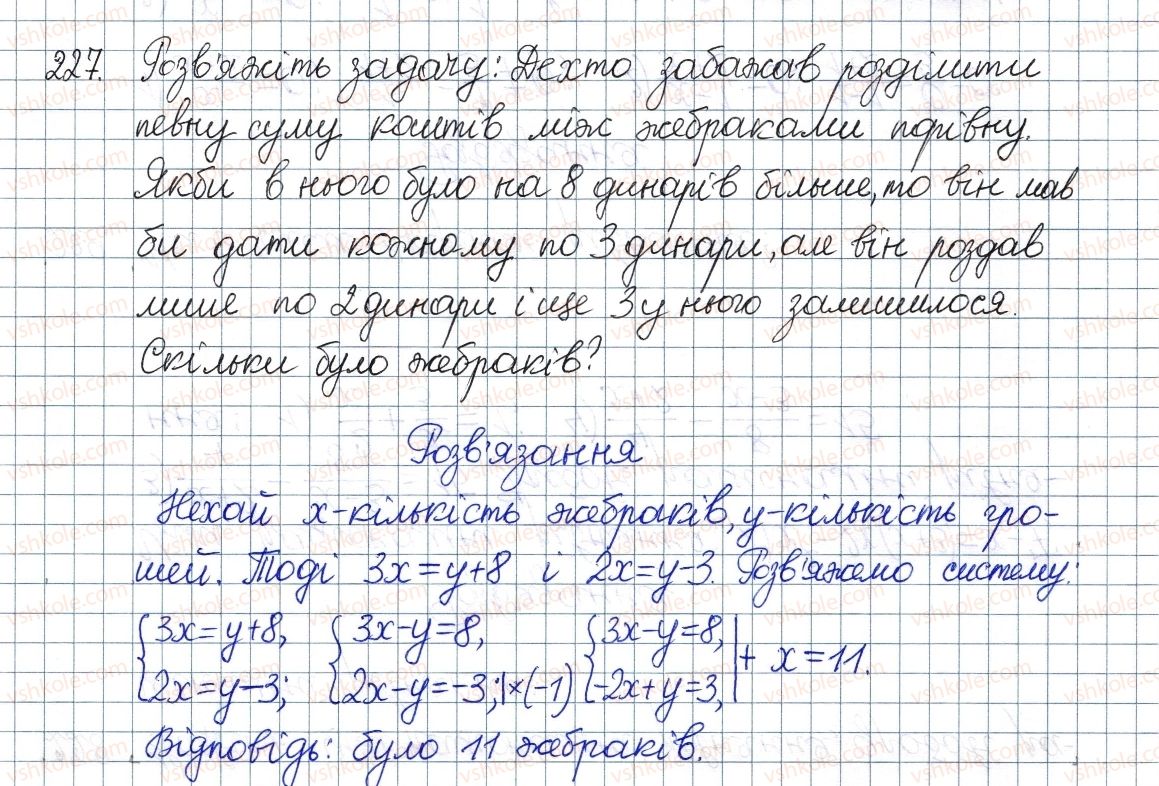 227. Розв'яжіть задачу: Дехто забажав розділити
певну суму коштів між жебраками порівну.
Якби в нього було на 8 динарів більше, то він мав
би дати кожному по 3 динари, але він роздав
лише по 2 динари і ще 3 у нього залишилося.
Скільки було жебраків?
Розв'язання
Нехай x - кількість жебраків, y - кількість гро-
шей. Тоді 3x = y + 8 і 2x = y - 3. Розв'яжемо систему:
{3x = y + 8, {3x - y = 8, {3x - y = 8, | + x = 11.
{2x = y - 3; {2x - y = -3; | × (-1) {-2x + y = 3, |
Відповідь: було 11 жебраків.